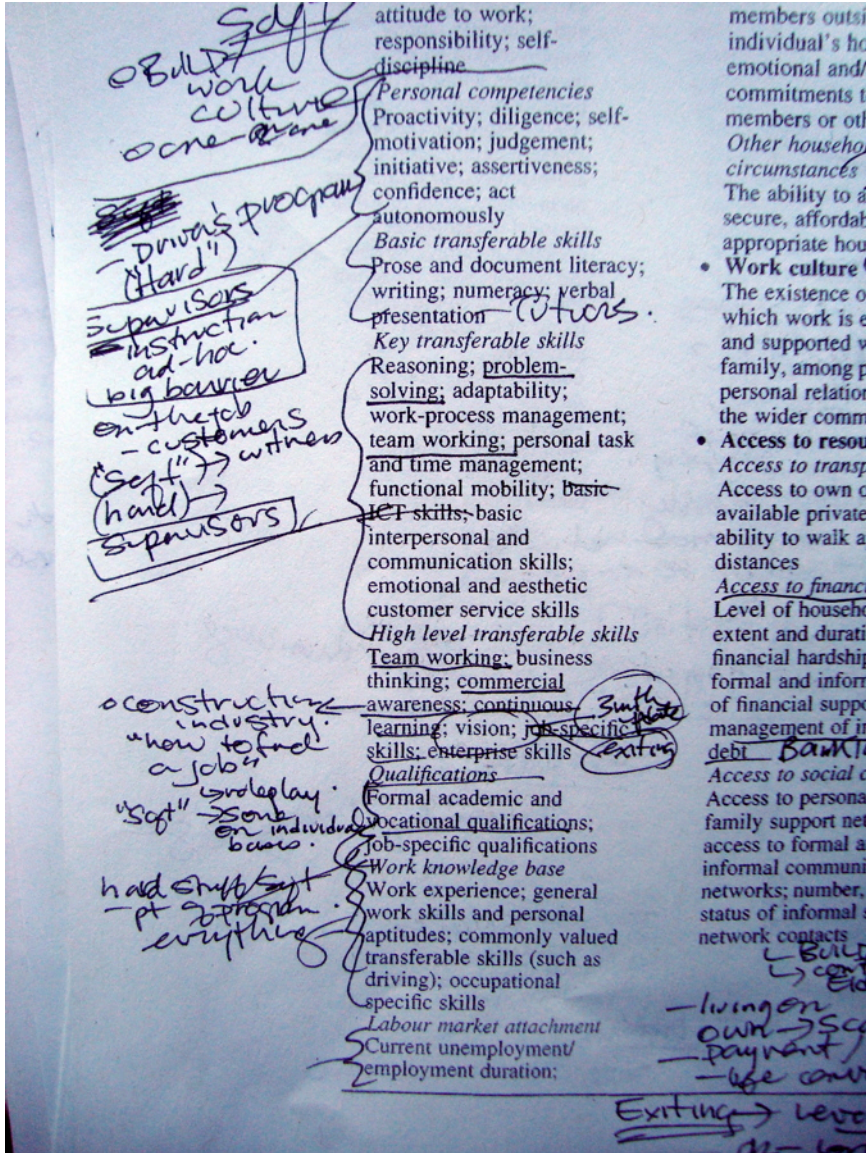 Soft
o Build
work
culture
o one-one
- Driver's program
("Hard")
Supervisors
instruction
ad-hoc.
big barrier
on-the-job
- customers
("Soft") → witness
(hard) →
Supervisors
o construction
industry.
"how to find
a job"
↳ roleplay.
"Soft" → some
on individual
basis.
hard stuff/soft
- pt of program.
everything
attitude to work;
responsibility; self-
discipline
Personal competencies
Proactivity; diligence; self-
motivation; judgement;
initiative; assertiveness;
confidence; act
autonomously
Basic transferable skills
Prose and document literacy;
writing; numeracy; verbal
presentation - tutors.
Key transferable skills
Reasoning; problem-
solving; adaptability;
work-process management;
team working; personal task
and time management;
functional mobility; basic
ICT skills; basic
interpersonal and
communication skills;
emotional and aesthetic
customer service skills
High level transferable skills
Team working; business
thinking; commercial
awareness; continuous
learning; vision; job-specific
skills; enterprise skills
3 mth
exiting
Qualifications
Formal academic and
vocational qualifications;
job-specific qualifications
Work knowledge base
Work experience; general
work skills and personal
aptitudes; commonly valued
transferable skills (such as
driving); occupational
specific skills
Labour market attachment
Current unemployment/
employment duration;
members outsi
individual's ho
emotional and/
commitments t
members or oth
Other househo
circumstances
The ability to a
secure, affordab
appropriate hou
• Work culture
The existence o
which work is e
and supported w
family, among p
personal relation
the wider comm
• Access to resou
Access to transp
Access to own o
available private
ability to walk a
distances
Access to financi
Level of househo
extent and durati
financial hardship
formal and inform
of financial suppo
management of in
debt
Access to social c
Access to persona
family support net
access to formal a
informal communi
networks; number,
status of informal s
network contacts
↳ Build
- living on
own → So
- payment
- life
Exiting → leve